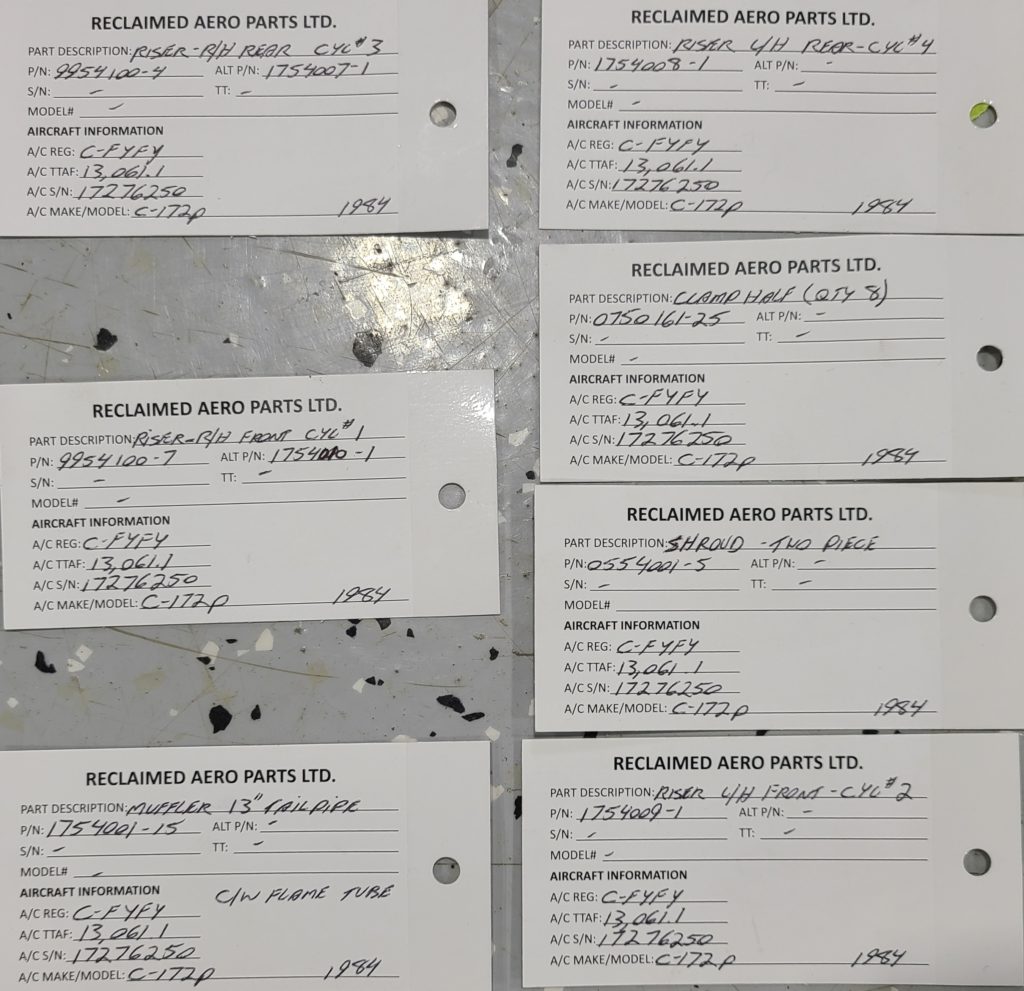 RECLAIMED AERO PARTS LTD.
PART DESCRIPTION: RISER-R/H REAR CYL#3
P/N: 9954100-4 ALT P/N: 1754007-1
S/N: - TT: -
MODEL# -
AIRCRAFT INFORMATION
A/C REG: C-FYFY
A/C TTAF: 13,061.1
A/C S/N: 17276250
A/C MAKE/MODEL: C-172P 1984
RECLAIMED AERO PARTS LTD.
PART DESCRIPTION: RISER-R/H FRONT CYL#1
P/N: 9954100-7 ALT P/N: 1754010-1
S/N: - TT: -
MODEL# -
AIRCRAFT INFORMATION
A/C REG: C-FYFY
A/C TTAF: 13,061.1
A/C S/N: 17276250
A/C MAKE/MODEL: C-172P 1984
RECLAIMED AERO PARTS LTD.
PART DESCRIPTION: MUFFLER 13" TAILPIPE
P/N: 1754001-15 ALT P/N: -
S/N: - TT: -
MODEL# -
AIRCRAFT INFORMATION C/W FLAME TUBE
A/C REG: C-FYFY
A/C TTAF: 13,061.1
A/C S/N: 17276250
A/C MAKE/MODEL: C-172P 1984
RECLAIMED AERO PARTS LTD.
PART DESCRIPTION: RISER L/H REAR-CYL#4
P/N: 1754008-1 ALT P/N: -
S/N: - TT: -
MODEL# -
AIRCRAFT INFORMATION
A/C REG: C-FYFY
A/C TTAF: 13,061.1
A/C S/N: 17276250
A/C MAKE/MODEL: C-172P 1984
RECLAIMED AERO PARTS LTD.
PART DESCRIPTION: CLAMP HALF (QTY 8)
P/N: 0750161-25 ALT P/N: -
S/N: - TT: -
MODEL# -
AIRCRAFT INFORMATION
A/C REG: C-FYFY
A/C TTAF: 13,061.1
A/C S/N: 17276250
A/C MAKE/MODEL: C-172P 1984
RECLAIMED AERO PARTS LTD.
PART DESCRIPTION: SHROUD - TWO PIECE
P/N: 0554001-5 ALT P/N: -
S/N: - TT: -
MODEL#
AIRCRAFT INFORMATION
A/C REG: C-FYFY
A/C TTAF: 13,061.1
A/C S/N: 17276250
A/C MAKE/MODEL: C-172P 1984
RECLAIMED AERO PARTS LTD.
PART DESCRIPTION: RISER L/H FRONT-CYL#2
P/N: 1754009-1 ALT P/N: -
S/N: - TT: -
MODEL# -
AIRCRAFT INFORMATION
A/C REG: C-FYFY
A/C TTAF: 13,061.1
A/C S/N: 17276250
A/C MAKE/MODEL: C-172P 1984